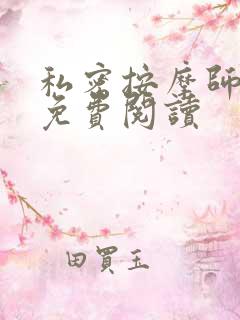 私密按摩師
免費閱讀
田買玉